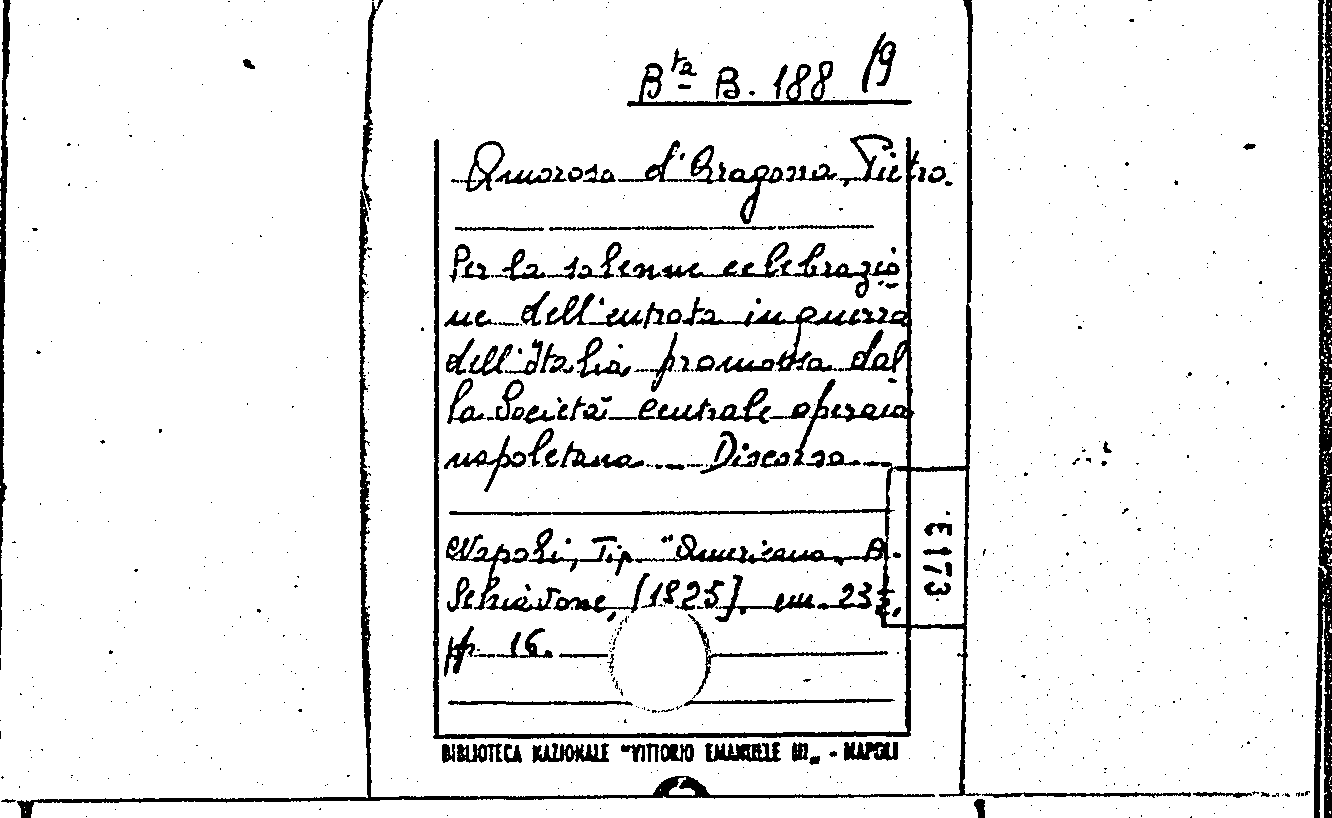 Bta B. 188 (9
Amoroso d'Aragona, Pietro.
Per la solenne celebrazio
ne dell'entrata in guerra
dell'Italia promossa dal
la Società centrale operaia
napoletana. Discorso
Napoli, Tip. "Americana, A.
Schiavone, [1925]. cm. 23½,
pp 16.
E173
BIBLIOTECA NAZIONALE "VITTORIO EMANUELE III„ - NAPOLI